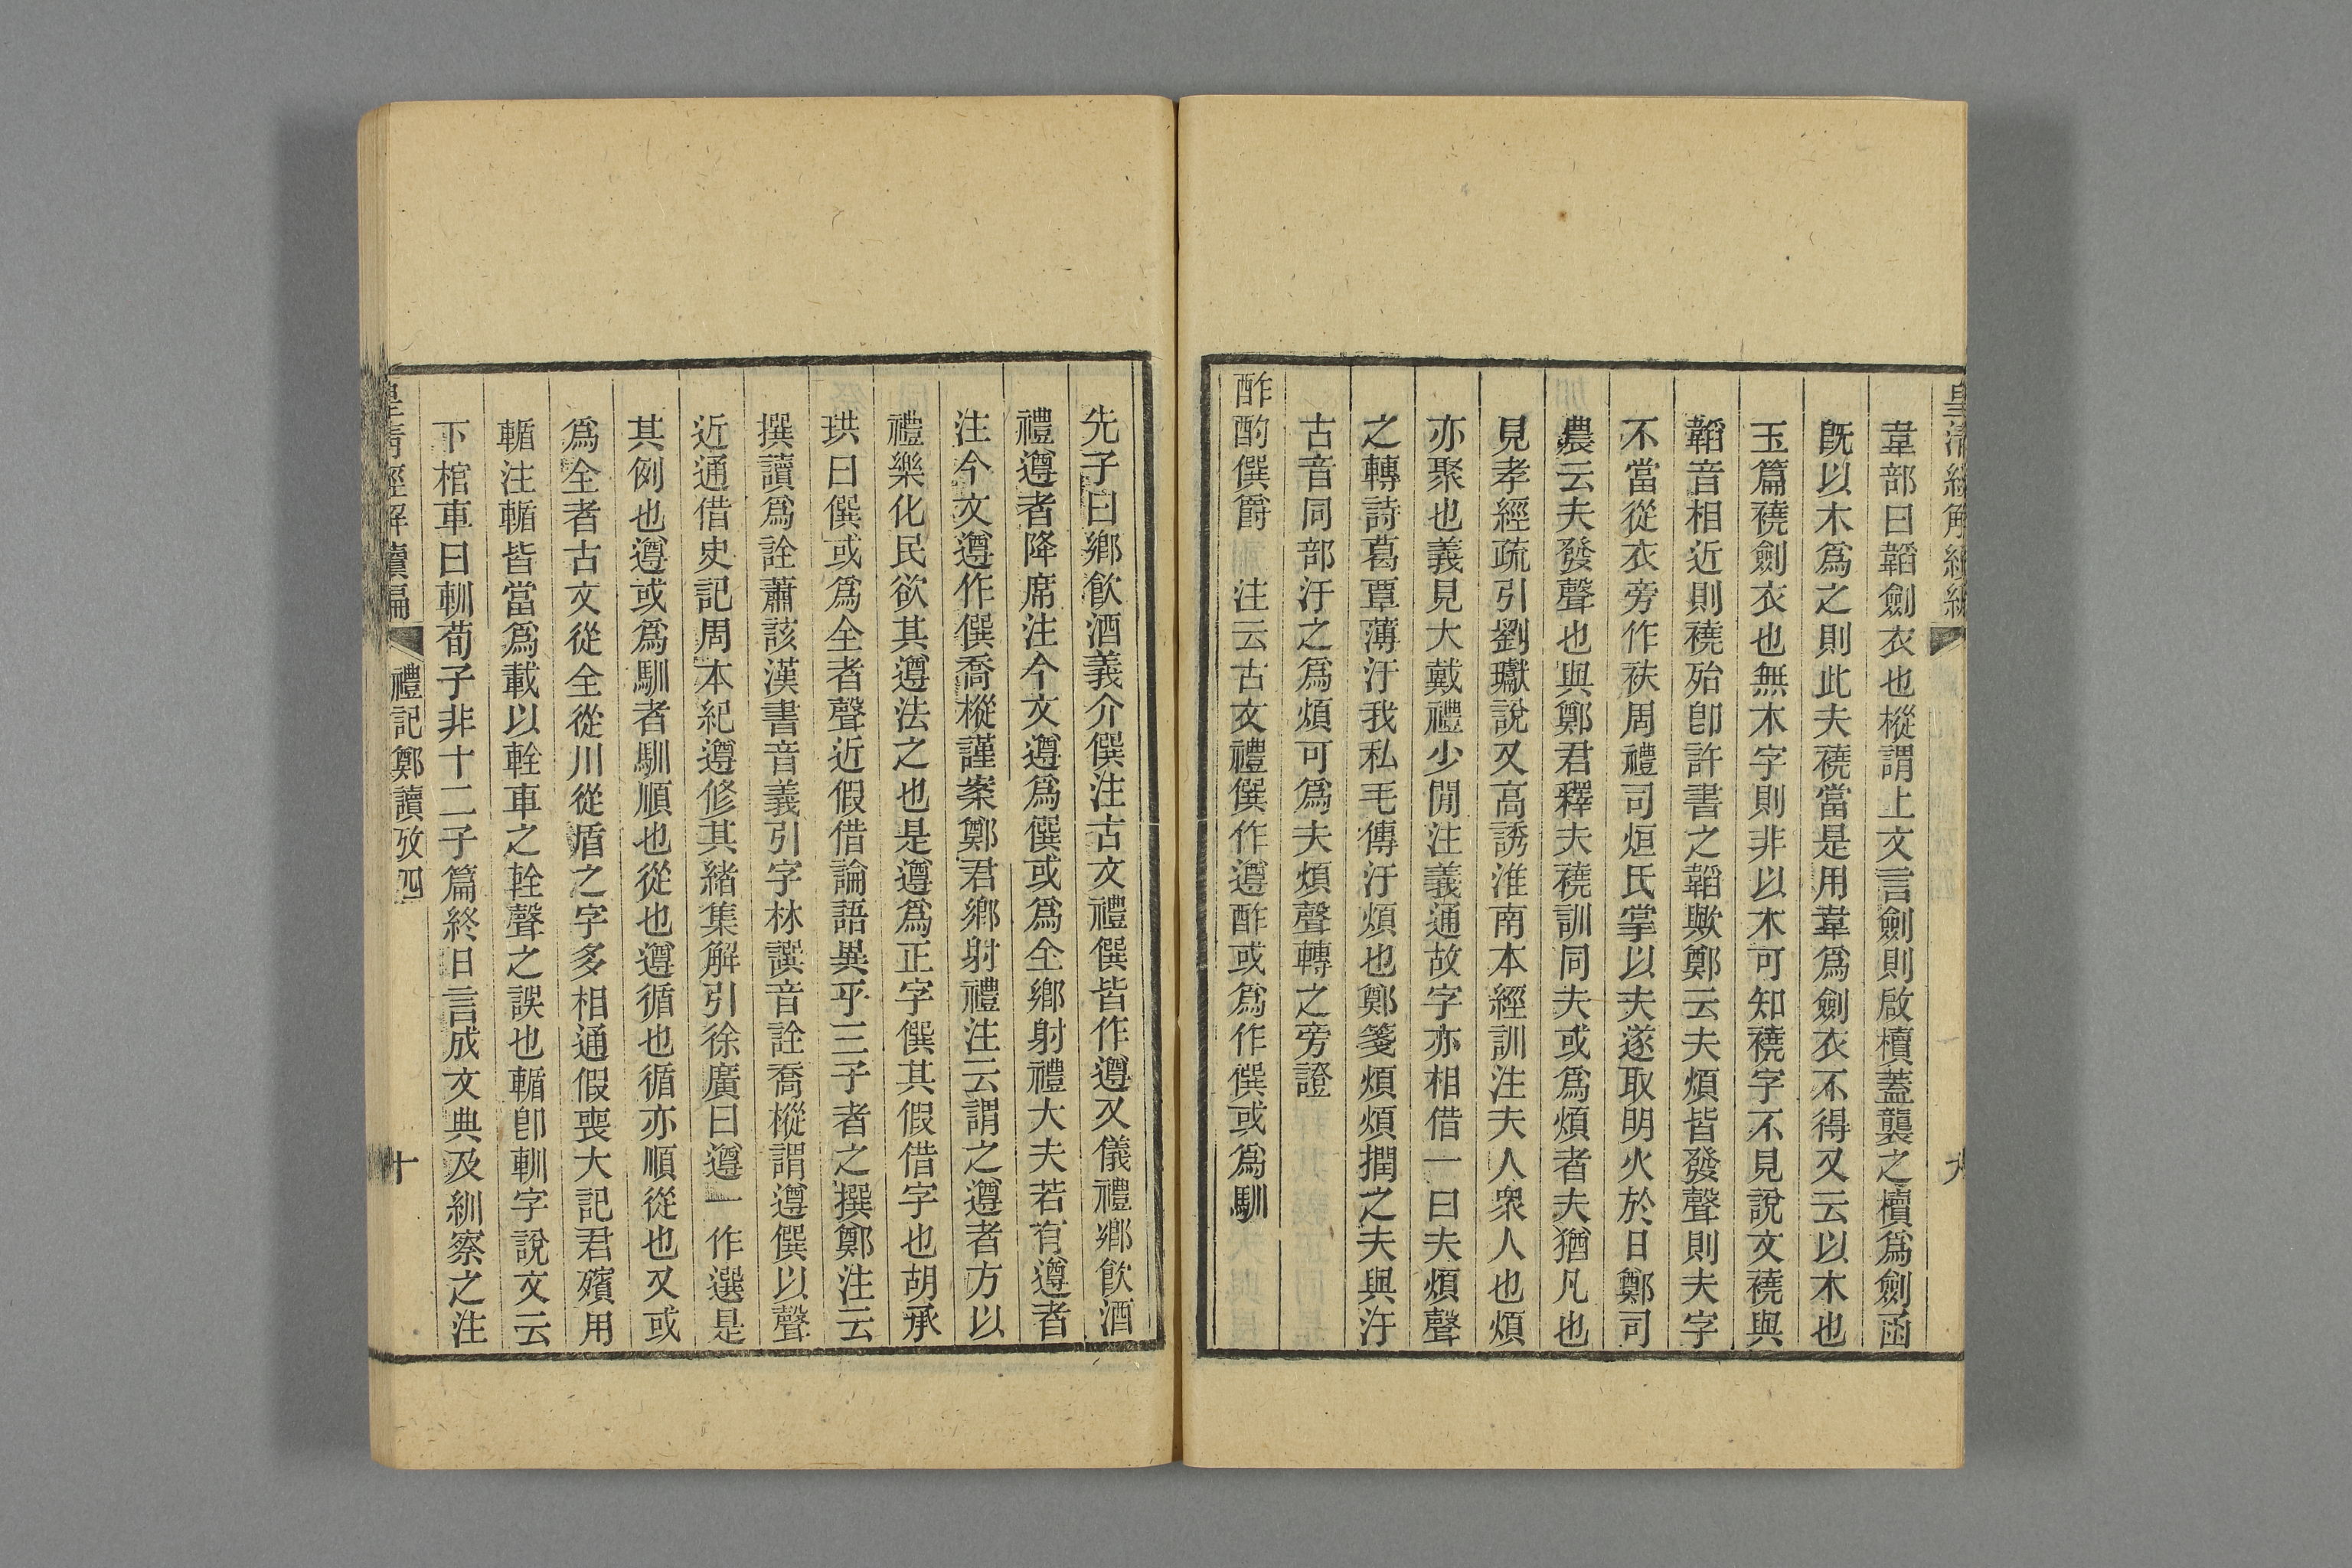 皇清經解續編
九
韋部曰韜劍衣也樅謂上文言劍則啟櫝蓋襲之櫝爲劍函
旣以木爲之則此夫襓當是用韋爲劍衣不得又云以木也
玉篇襓劍衣也無木字則非以木可知襓字不見說文襓與
韜音相近則襓殆卽許書之韜歟鄭云夫煩皆發聲則夫字
不當從衣旁作袂周禮司烜氏掌以夫遂取明火於日鄭司
農云夫發聲也與鄭君釋夫襓訓同夫或爲煩者夫猶凡也
見孝經疏引劉瓛說又高誘淮南本經訓注夫人衆人也煩
亦聚也義見大戴禮少閒注義通故字亦相借一曰夫煩聲
之轉詩葛覃薄汙我私毛傳汙煩也鄭箋煩煩撋之夫與汙
古音同部汙之爲煩可爲夫煩聲轉之旁證
酢酌僎爵　注云古文禮僎作遵酢或爲作僎或爲馴
先子曰鄉飮酒義介僎注古文禮僎皆作遵又儀禮鄉飮酒
禮遵者降席注今文遵爲僎或爲全鄉射禮大夫若有遵者
注今文遵作僎喬樅謹案鄭君鄉射禮注云謂之遵者方以
禮樂化民欲其遵法之也是遵爲正字僎其假借字也胡承
珙曰僎或爲全者聲近假借論語異乎三子者之撰鄭注云
撰讀爲詮蕭該漢書音義引字林譔音詮喬樅謂遵僎以聲
近通借史記周本紀遵修其緒集解引徐廣曰遵一作選是
其例也遵或爲馴者馴順也從也遵循也循亦順從也又或
爲全者古文從全從川從盾之字多相通假喪大記君殯用
輴注輴皆當爲載以輇車之輇聲之誤也輴卽𨋽字說文云
下棺車曰𨋽荀子非十二子篇終日言成文典及紃察之注
皇清經解續編
禮記鄭讀攷四
十